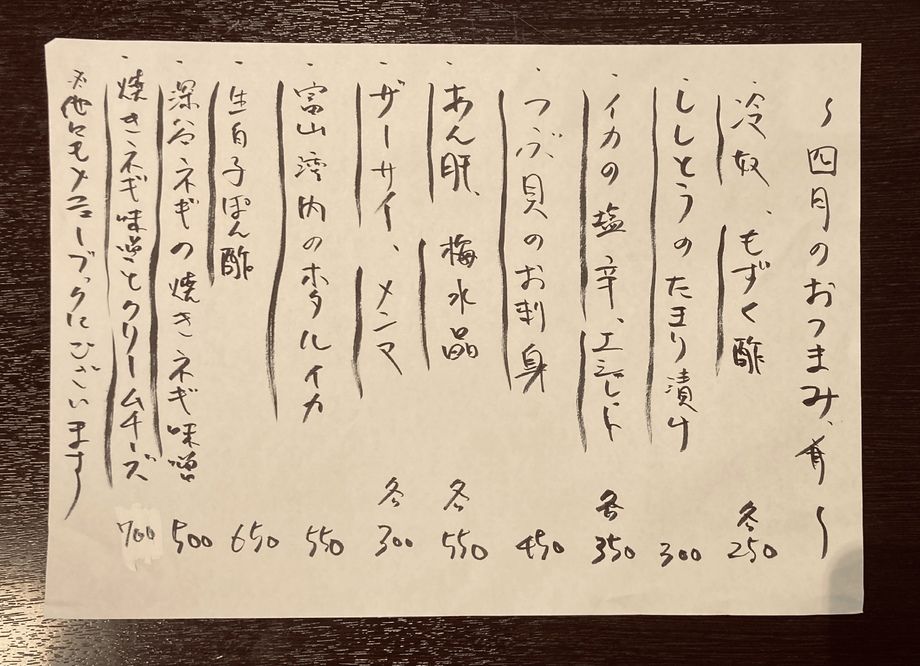 〜四月のおつまみ、肴〜
・冷奴、もずく酢 各250
・ししとうのたまり漬け 300
・イカの塩辛、エシャレット 各350
・つぶ貝のお刺身 450
・あん肝、梅水晶 各550
・ザーサイ、メンマ 各300
・富山湾内のホタルイカ 550
・生白子ぽん酢 650
・深谷ネギの焼きネギ味噌 500
・焼きネギ味噌とクリームチーズ 700
※他にもメニューブックにございます〜